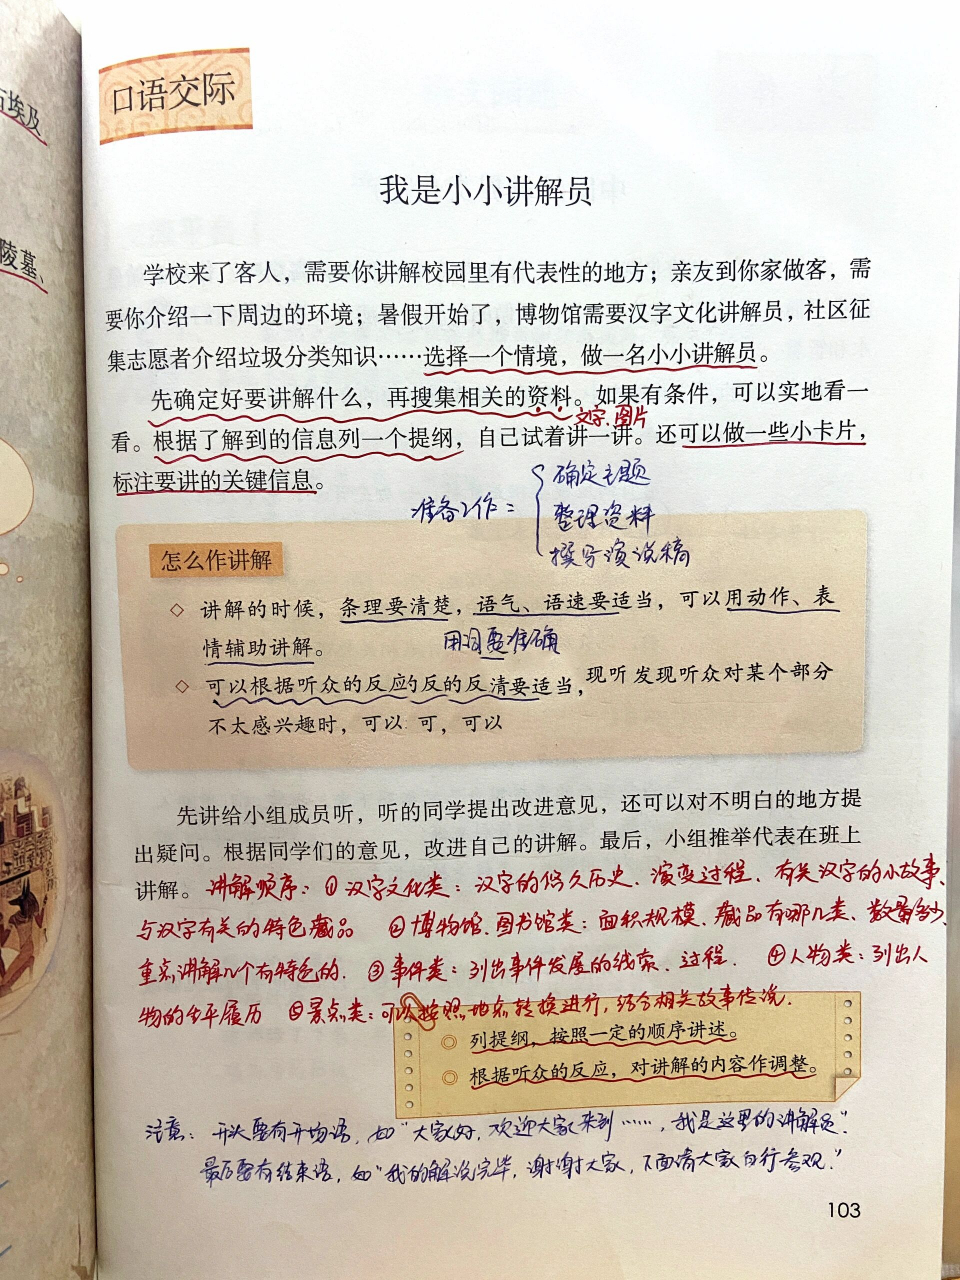 石埃及
陵墓、
口语交际
我是小小讲解员
学校来了客人，需要你讲解校园里有代表性的地方；亲友到你家做客，需
要你介绍一下周边的环境；暑假开始了，博物馆需要汉字文化讲解员，社区征
集志愿者介绍垃圾分类知识……选择一个情境，做一名小小讲解员。
先确定好要讲解什么，再搜集相关的资料。如果有条件，可以实地看一
文字、图片
看。根据了解到的信息列一个提纲，自己试着讲一讲。还可以做一些小卡片，
标注要讲的关键信息。
准备工作：
确定主题
整理资料
撰写演说稿
怎么作讲解
◇ 讲解的时候，条理要清楚，语气、语速要适当，可以用动作、表
情辅助讲解。
用词要准确
◇ 可以根据听众的反应的反的反清要适当，现听发现听众对某个部分
不太感兴趣时，可以 可，可以
先讲给小组成员听，听的同学提出改进意见，还可以对不明白的地方提
出疑问。根据同学们的意见，改进自己的讲解。最后，小组推举代表在班上
讲解。
讲解顺序：①汉字文化类：汉字的悠久历史、演变过程、有关汉字的小故事、
与汉字有关的特色藏品 ②博物馆、图书馆类：面积规模、藏品有哪几类、数量多少、
重点讲解几个有特色的. ③事件类：列出事件发展的线索、过程. ④人物类：列出人
物的生平履历 ⑤景点类：可以按照地点转换进行，结合相关故事传说.
◎ 列提纲，按照一定的顺序讲述。
◎ 根据听众的反应，对讲解的内容作调整。
注意：开头要有开场语，如“大家好，欢迎大家来到……，我是这里的讲解员”.
最后要有结束语，如“我的解说完毕，谢谢大家，下面请大家自行参观.”
103